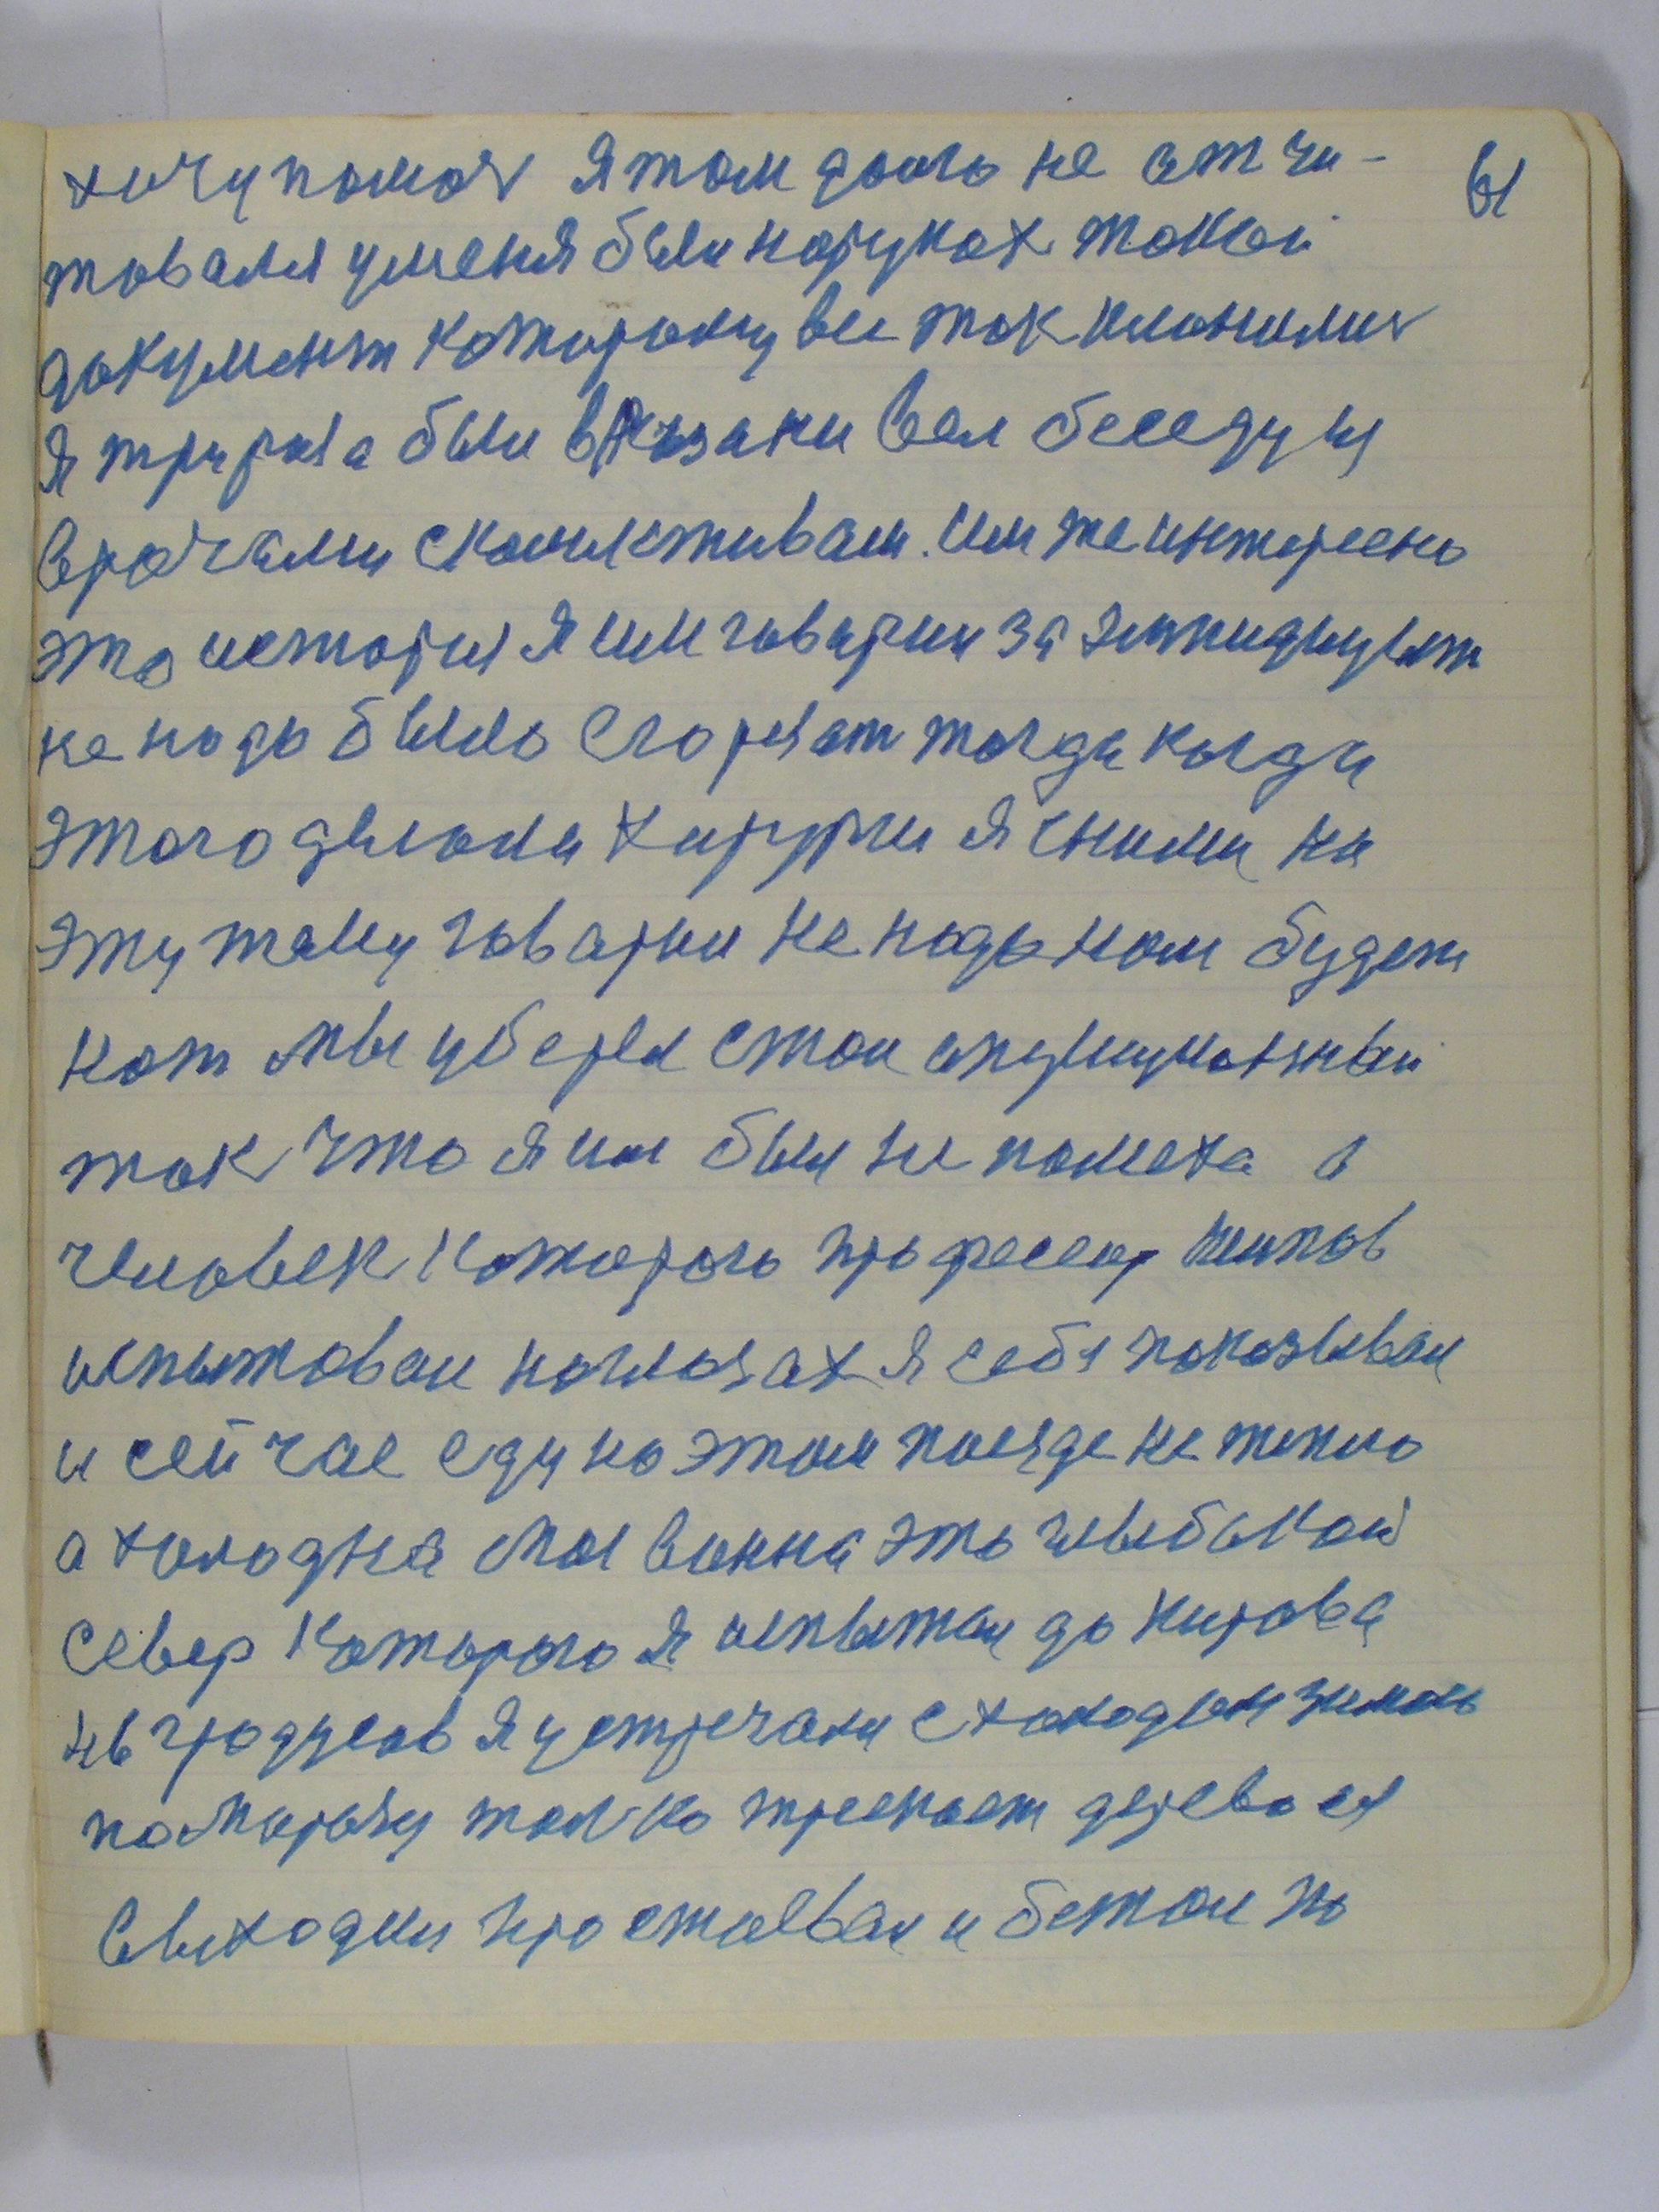 хочу помоч я там долго не отчи-
товался уменя был наруках такой
документ которому все так клонилис
я три раза был в Рязани вел беседу с
врачами сколективам. им же интересно
это история я им говорил за
не надо было сгорят тогда когда
этого делали хирурги я сними на
эту тему говарил не надо нам будет
нот мы уберем стол
так что я им был не помеха а
человек которого професор
испытовал наглазах я себя показывал
и сейчас еду на этом поезде не тепло
а холодна моя ванна это глыбокой
север которого я испытал до Кирова
градусов я устречался схолодом зимой
поморозу только трескает дерево ся
выходил простаевал и бетон по